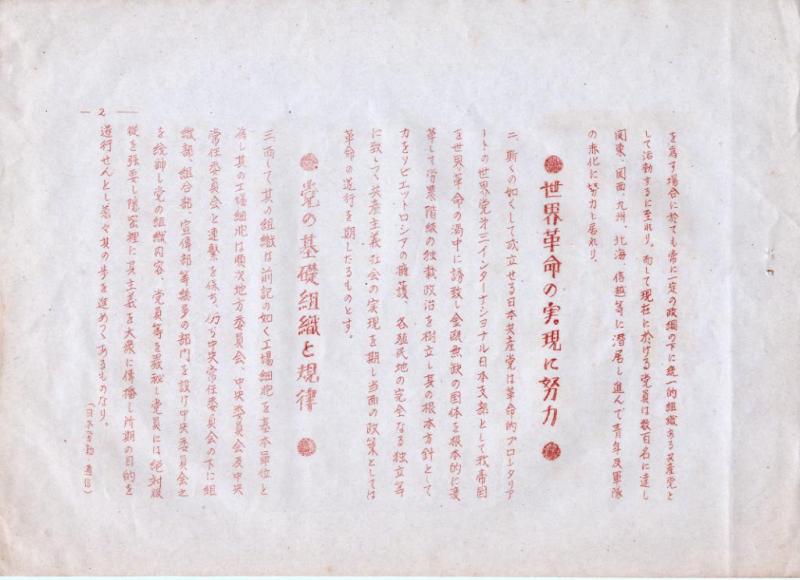 を為す場合に於ても常に一定の政綱の下に統一的組織ある共産党と
して活動するに至れり。而して現在に於ける党員は数百名に達し
関東、関西、九州、北海、信越等に潜居し進んで青年及軍隊
の赤化に努力し居れり。
世界革命の実現に努力
二、斯くの如くして成立せる日本共産党は革命的プロレタリア
ートの世界党第三インターナショナル日本支部として我帝国
を世界革命の渦中に誘致し金甌無欠の国体を根本的に変
革して労農階級の独裁政治を樹立し其の根本方針として
力をソビエットロシアの擁護、各殖民地の完全なる独立等
に致して共産主義社会の実現を期し当面の政策としては
革命の遂行を期したるものとす。
党の基礎組織と規律
三、而して其の組織は前記の如く工場細胞を基本単位と
為し其の工場細胞は順次地方委員会、中央委員会及中央
常任委員会と連繋を保ち、仍ち中央常任委員会の下に組
織部、組合部、宣伝部等幾多の部門を設け中央委員会之
を統帥し党の組織内容、党員等を厳秘し党員には絶対服
従を強要し隠密裡に其主義を大衆に伝播し所期の目的を
遂行せんとし着々其の歩を進めつゝあるものなり。
通信)
— 2 —